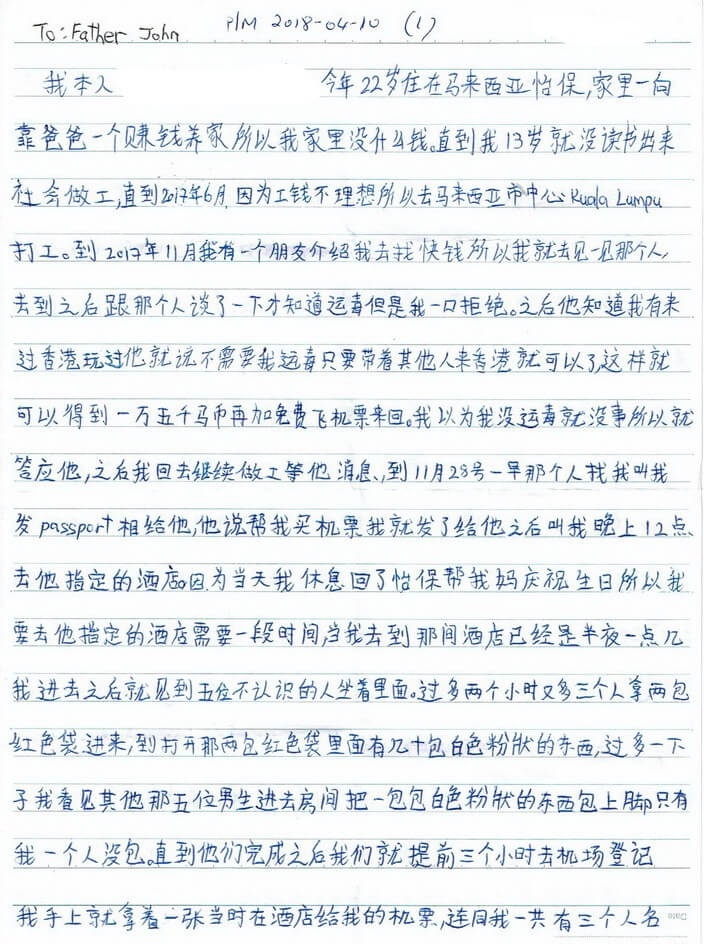 To: Father John P/M 2018-04-10 (1)
我本人 今年22岁住在马来西亚怡保,家里一向
靠爸爸一个赚钱养家所以我家里没什么钱。直到我13岁就没读书出来
社会做工,直到2017年6月,因为工钱不理想所以去马来西亚市中心Kuala Lumpu
打工。到2017年11月我有一个朋友介绍我去找快钱所以我就去见一见那个人,
去到之后跟那个人谈了一下才知道运毒但是我一口拒绝。之后他知道我有来
过香港玩过他就说不需要我运毒只要带着其他人来香港就可以了,这样就
可以得到一万五千马币再加免费飞机票来回。我以为我没运毒就没事所以就
答应他,之后我回去继续做工等他消息、到11月28号一早那个人找我叫我
发passport相给他,他说帮我买机票我就发了给他之后叫我晚上12点
去他指定的酒店。因为当天我休息回了怡保帮我妈庆祝生日所以我
要去他指定的酒店需要一段时间,当我去到那间酒店已经是半夜一点几
我进去之后就见到五位不认识的人坐着里面。过多两个小时又多三个人拿两包
红色袋进来,到打开那两包红色袋里面有几十包白色粉状的东西,过多一下
子我看见其他那五位男生进去房间把一包包白色粉状的东西包上脚只有
我一个人没包。直到他们完成之后我们就提前三个小时去机场登记
我手上就拿着一张当时在酒店给我的机票,连同我一共有三个人名
Date